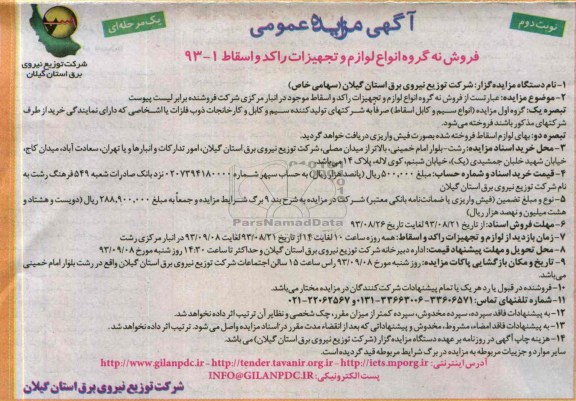 نوبت دوم
آگهی مزایده عمومی
یک مرحله‌ای
فروش نه گروه انواع لوازم و تجهیزات راکد و اسقاط ۱-۹۳
شرکت توزیع نیروی
برق استان گیلان
۱-نام دستگاه مزایده گزار: شرکت توزیع نیروی برق استان گیلان (سهامی خاص)
۲-موضوع مزایده: عبارتست از فروش نه گروه انواع لوازم و تجهیزات راکد و اسقاط موجود در انبار مرکزی شرکت فروشنده برابر لیست پیوست
تبصره یک: گروه اول مزایده (انواع سیم و کابل اسقاط) صرفاً به شرکتهای تولیدکننده سیم و کابل و کارخانجات ذوب فلزات یا اشخاصی که دارای نمایندگی خرید از طرف
شرکتهای مذکور باشند فروخته می‌شود.
تبصره دو: بهای لوازم اسقاط فروخته شده بصورت فیش واریزی دریافت خواهد گردید.
۳- محل خرید اسناد مزایده: رشت- بلوار امام خمینی، بالاتر از میدان مصلی، شرکت توزیع نیروی برق استان گیلان، امور تدارکات و انبارها و یا تهران، سعادت آباد، میدان کاج،
خیابان شهید خلبان جمشیدی (یک)، خیابان شبنم، کوی لاله، پلاک ۱۴ می‌باشد.
۴- قیمت خرید اسناد و شماره حساب: مبلغ ۵۰۰,۰۰۰ ریال (پانصد هزار ریال) به حساب سپهر شماره ۰۲۰۷۳۹۴۱۸۰۰۰۰ نزد بانک صادرات شعبه ۵۴۹ فرهنگ رشت به
نام شرکت توزیع نیروی برق استان گیلان
۵- نوع و مبلغ تضمین (فیش واریزی یا ضمانتنامه بانکی معتبر) شرکت در مزایده به شرح بند ۹ برگ شرایط مزایده و جمعاً به مبلغ ۲۸۸,۹۰۰,۰۰۰ ریال (دویست و هشتاد و
هشت میلیون و نهصد هزار ریال)
۶- مهلت فروش اسناد: از تاریخ ۹۳/۰۸/۲۱ لغایت تاریخ ۹۳/۰۸/۲۶
۷- زمان بازدید از لوازم و تجهیزات راکد و اسقاط: همه روزه ساعت ۱۰ لغایت ۱۴ از تاریخ ۹۳/۰۸/۲۱ لغایت ۹۳/۰۹/۰۸ در انبار مرکزی رشت
۸- محل تحویل و مهلت پیشنهاد قیمت: اداره دبیرخانه شرکت توزیع نیروی برق استان گیلان و حداکثر تا ساعت ۱۴:۳۰ روز شنبه مورخ ۹۳/۰۹/۰۸
۹- تاریخ و مکان بازگشایی پاکات مزایده: روز شنبه مورخ ۹۳/۰۹/۰۸ راس ساعت ۱۵ سالن اجتماعات شرکت توزیع نیروی برق استان گیلان واقع در رشت بلوار امام خمینی
می‌باشد.
۱۰- فروشنده در قبول یا رد هر یک یا تمام پیشنهادات شرکت‌کنندگان در مزایده مختار می‌باشد.
۱۱- شماره تلفنهای تماس: ۳۳۶۰۶۵۷۱-۳۳۶۶۳۰۰۶-۰۱۳۱ و ۲۲۰۶۲۵۶۷-۰۲۱
۱۲- به پیشنهادات فاقد سپرده، سپرده مخدوش، سپرده کمتر از میزان مقرر، چک شخصی و نظایر آن ترتیب اثر داده نخواهد شد.
۱۳- به پیشنهادات فاقد امضاء، مشروط، مخدوش و پیشنهاداتی که بعد از انقضاء مدت مقرر در اسناد مزایده واصل می شود، ترتیب اثر داده نخواهد شد.
۱۴- هزینه چاپ آگهی در روزنامه بر عهده دستگاه مزایده گزار (شرکت توزیع نیروی برق استان گیلان) می باشد.
سایر موارد و جزییات مربوطه به مزایده در برگ شرایط مربوطه قید گردیده است.
آدرس اینترنتی: http://www.gilanpdc.ir - http://tender.tavanir.org.ir - http://iets.mporg.ir
پست الکترونیکی: INFO@GILANPDC.IR
شرکت توزیع نیروی برق استان گیلان
ParsNamadData